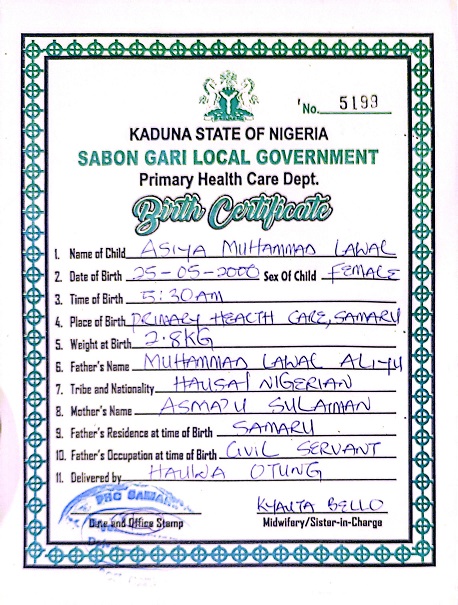 No. 5199
KADUNA STATE OF NIGERIA
SABON GARI LOCAL GOVERNMENT
Primary Health Care Dept.
Birth Certificate
1. Name of Child ASIYA MUHAMMAD LAWAL
2. Date of Birth 25-05-2000 Sex Of Child FEMALE
3. Time of Birth 5:30AM
4. Place of Birth PRIMARY HEALTH CARE, SAMARU
5. Weight at Birth 2.8KG
6. Father's Name MUHAMMAD LAWAL ALIYU
7. Tribe and Nationality HAUSA/ NIGERIAN
8. Mother's Name ASMA'U SULAIMAN
9. Father's Residence at time of Birth SAMARU
10. Father's Occupation at time of Birth CIVIL SERVANT
11. Delivered by HAUWA OTUNG
PHC
BELLO
Date and Office Stamp Midwifery/Sister-in-Charge